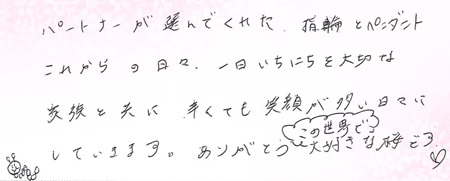 パートナーが選んでくれた、指輪とペンダント
これからの日々、一日いちにちを大切な
家族と共に 辛くても笑顔が多い日々に
この世界で
していきます。ありがとう 大好きな